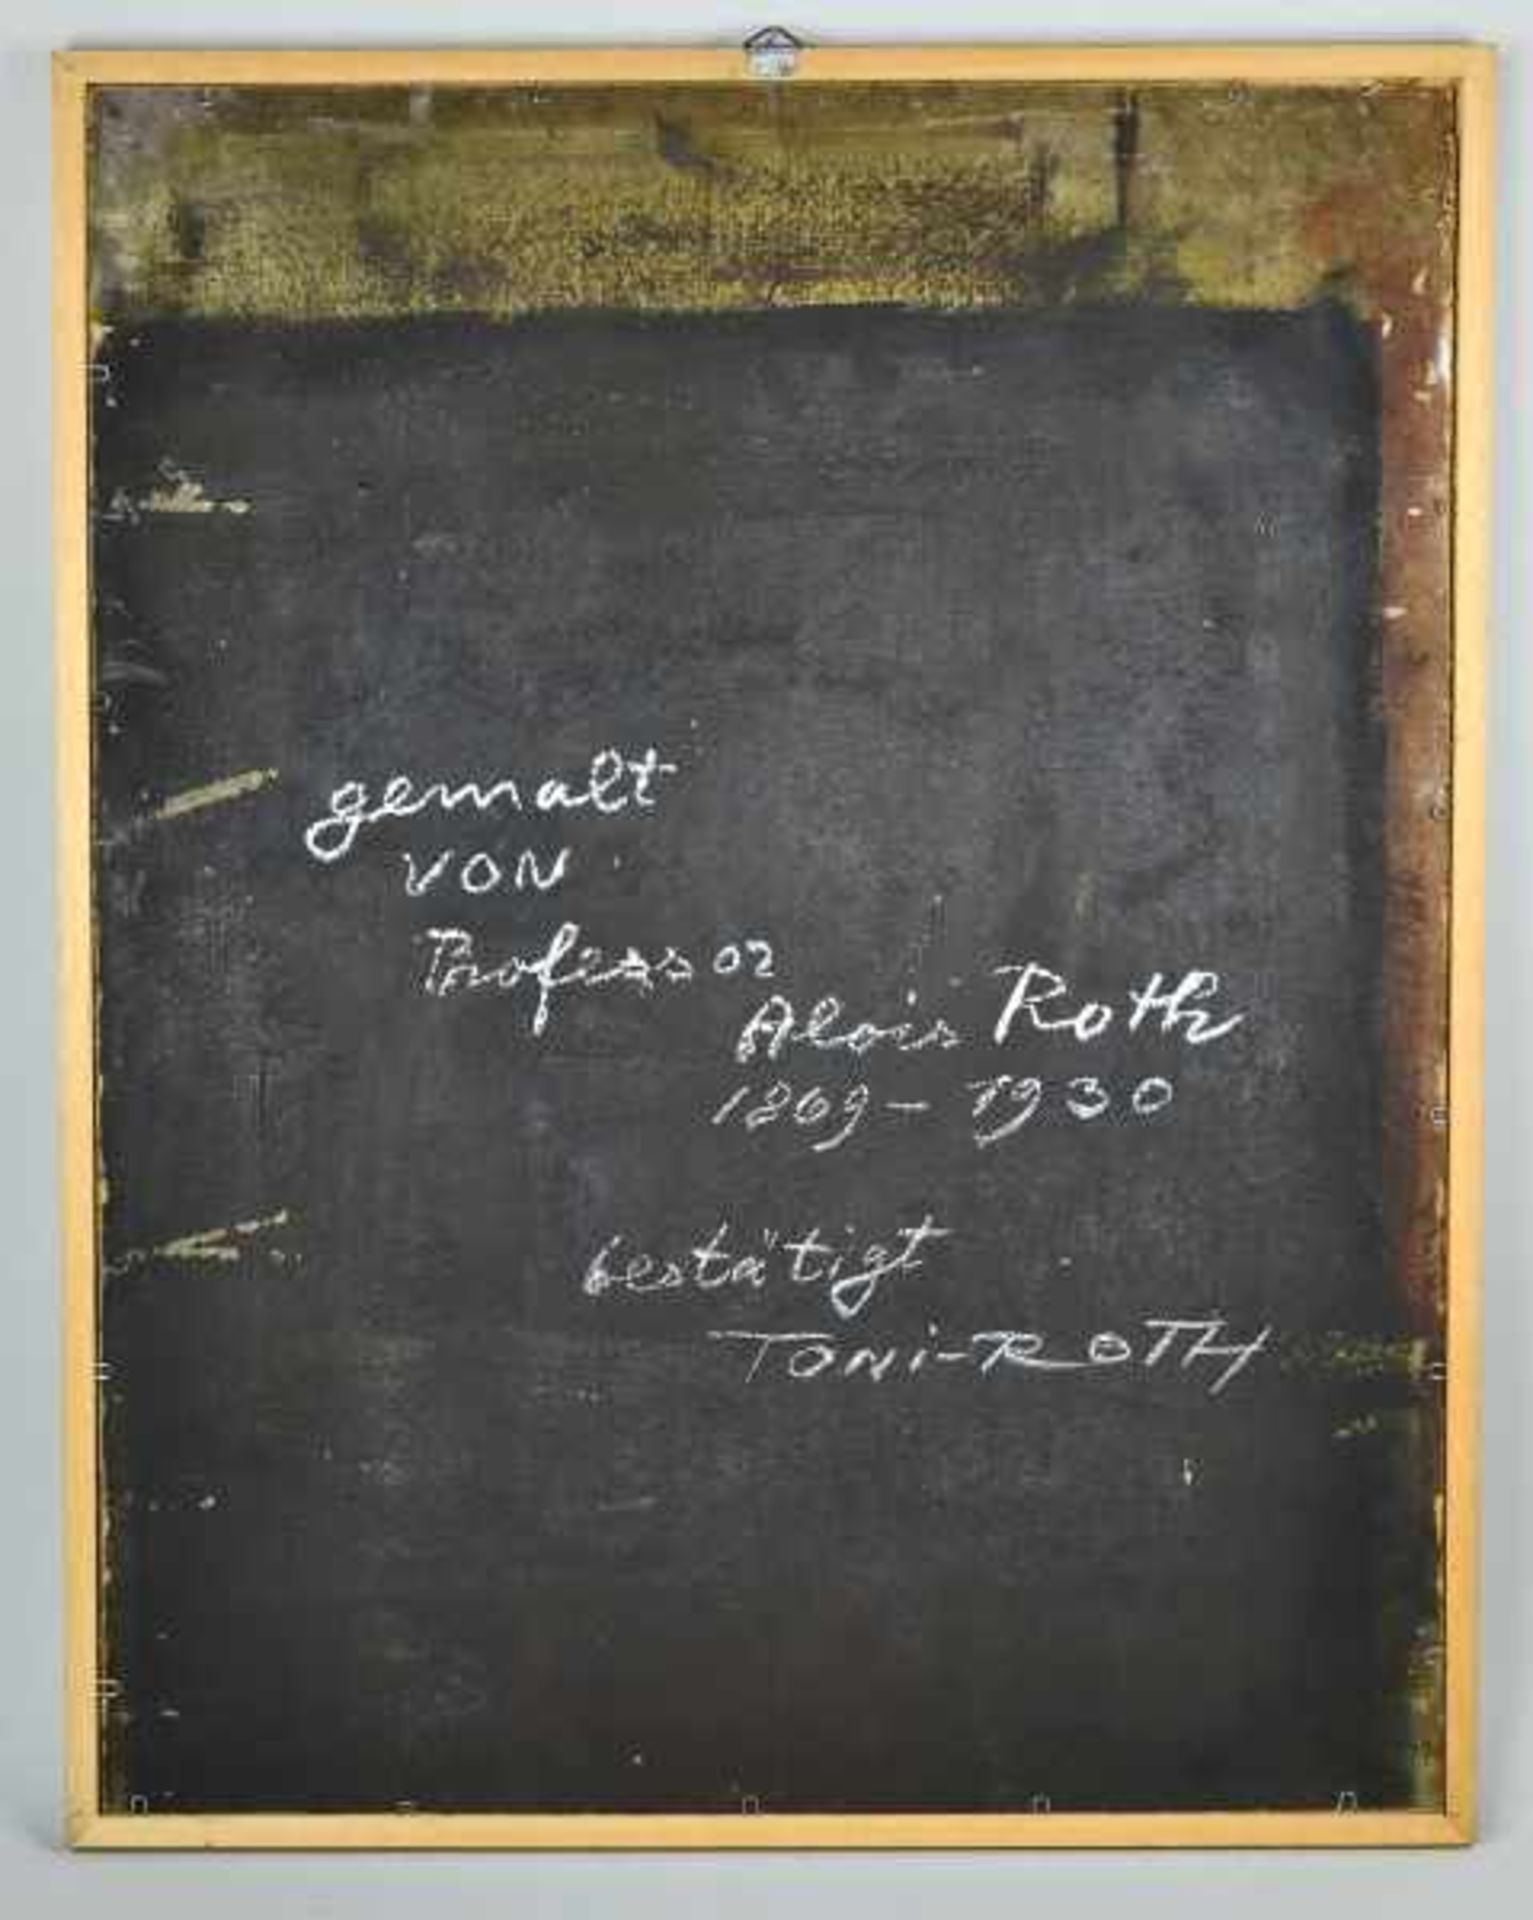 gemalt
VON
Professor
Alois Roth
1869 - 1930
bestätigt
TONi-ROTH